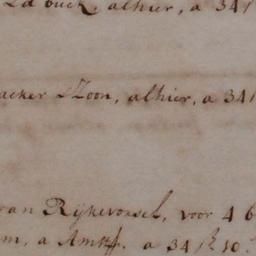 Ld buck, alhier, a 341
acker & Zoon, alhier, a 341
van Rijkevorsel, voor 4 6
m, a Amst. a 34 ß 10.